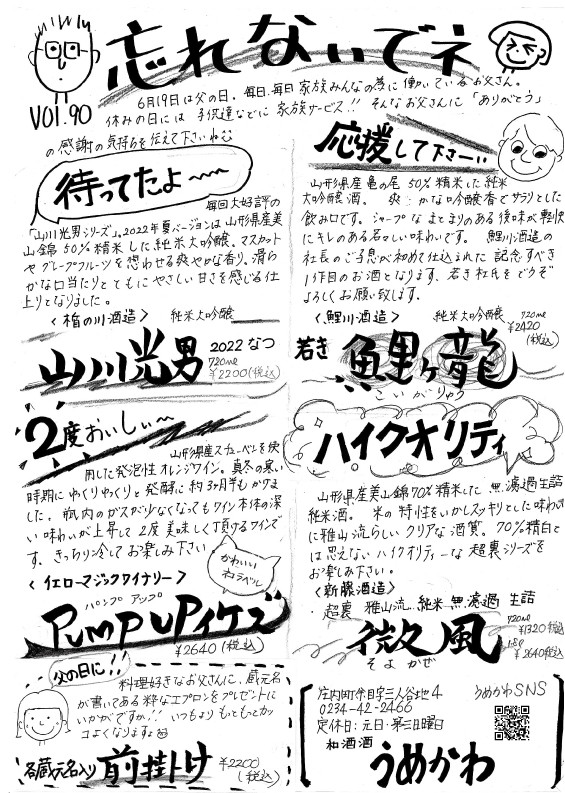 忘れないでネ
VOl.90
6月19日は父の日。毎日、毎日 家族みんなの為に働いているお父さん。
休みの日には 子供達などに 家族サービス!! そんなお父さんに「ありがとう」
の感謝の気持ちを伝えて下さいね
待ってたよ〜〜
毎回大好評の
「山川光男シリーズ」。2022年夏バージョンは山形県産美
山錦50%精米した純米大吟醸。マスカット
やグレープフルーツを想わせる爽やかな香り、滑ら
かな口当たりとともにやさしい甘さを感じる仕
上りとなりました。
<楯の川酒造> 純米大吟醸
山川光男 2022 なつ
720ml
¥2200(税込)
応援して下さーい
山形県産亀の尾 50%精米した純米
大吟醸酒。 爽かな吟醸香でサラリとした
飲み口です。シャープなまとまりのある後味が軽快
にキレのある若々しい味わいです。 鯉川酒造の
社長のご子息が初めて仕込まれた 記念すべき
1作目のお酒となります、若き杜氏をどうぞ
よろしくお願い致します。
<鯉川酒造> 純米大吟醸
720ml
¥2420
(税込)
若き 鯉ヶ龍
こいがりゅう
2度おいしぃ〜
山形県産スチューベンを使
用した発泡性オレンジワイン。真冬の寒い
時期にゆくりゆくりと発酵に約3ヶ月半もかけま
した。瓶内のガスが少なくなってもワイン本体の深
い味わいが上昇して2度美味しく頂けるワインで
す。きっちり冷してお楽しみ下さい
かわいい
ネコラベル
<イエローマジックワイナリー>
パンプ アップ
PUMP UPイケズ
¥2640(税込)
ハイクオリティ
山形県産美山錦70%精米した 無濾過生詰
純米酒。 米の特性をいかしスッキリとした味わい
に雅山流らしい クリアな酒質。70%精白と
は思えない ハイクオリティーな 超裏シリーズを
お楽しみ下さい。
<新藤酒造>
超裏 雅山流 純米 無濾過 生詰
微風
そよかぜ
720ml
¥1320税込
1.8L
¥2640税込
父の日に!!
料理好きなお父さんに、蔵元名
が書いてある粋なエプロンをプレゼントに
いかがですか!! いっちょりもっともっとカッ
コよくなりますよ
各蔵元名入り 前掛け ¥2200
(税込)
庄内町余目字三人谷地4
0234-42-2466
定休日:元日・第三日曜日
和酒酒 うめかわ
うめかわSNS